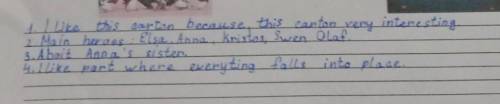 1. I like this carton because, this carton very interesting.
2 Main heroes: Elsa, Anna, Kristos, Swen Olaf.
3. About Anna's sister.
4. I like part where everyting falls into place.